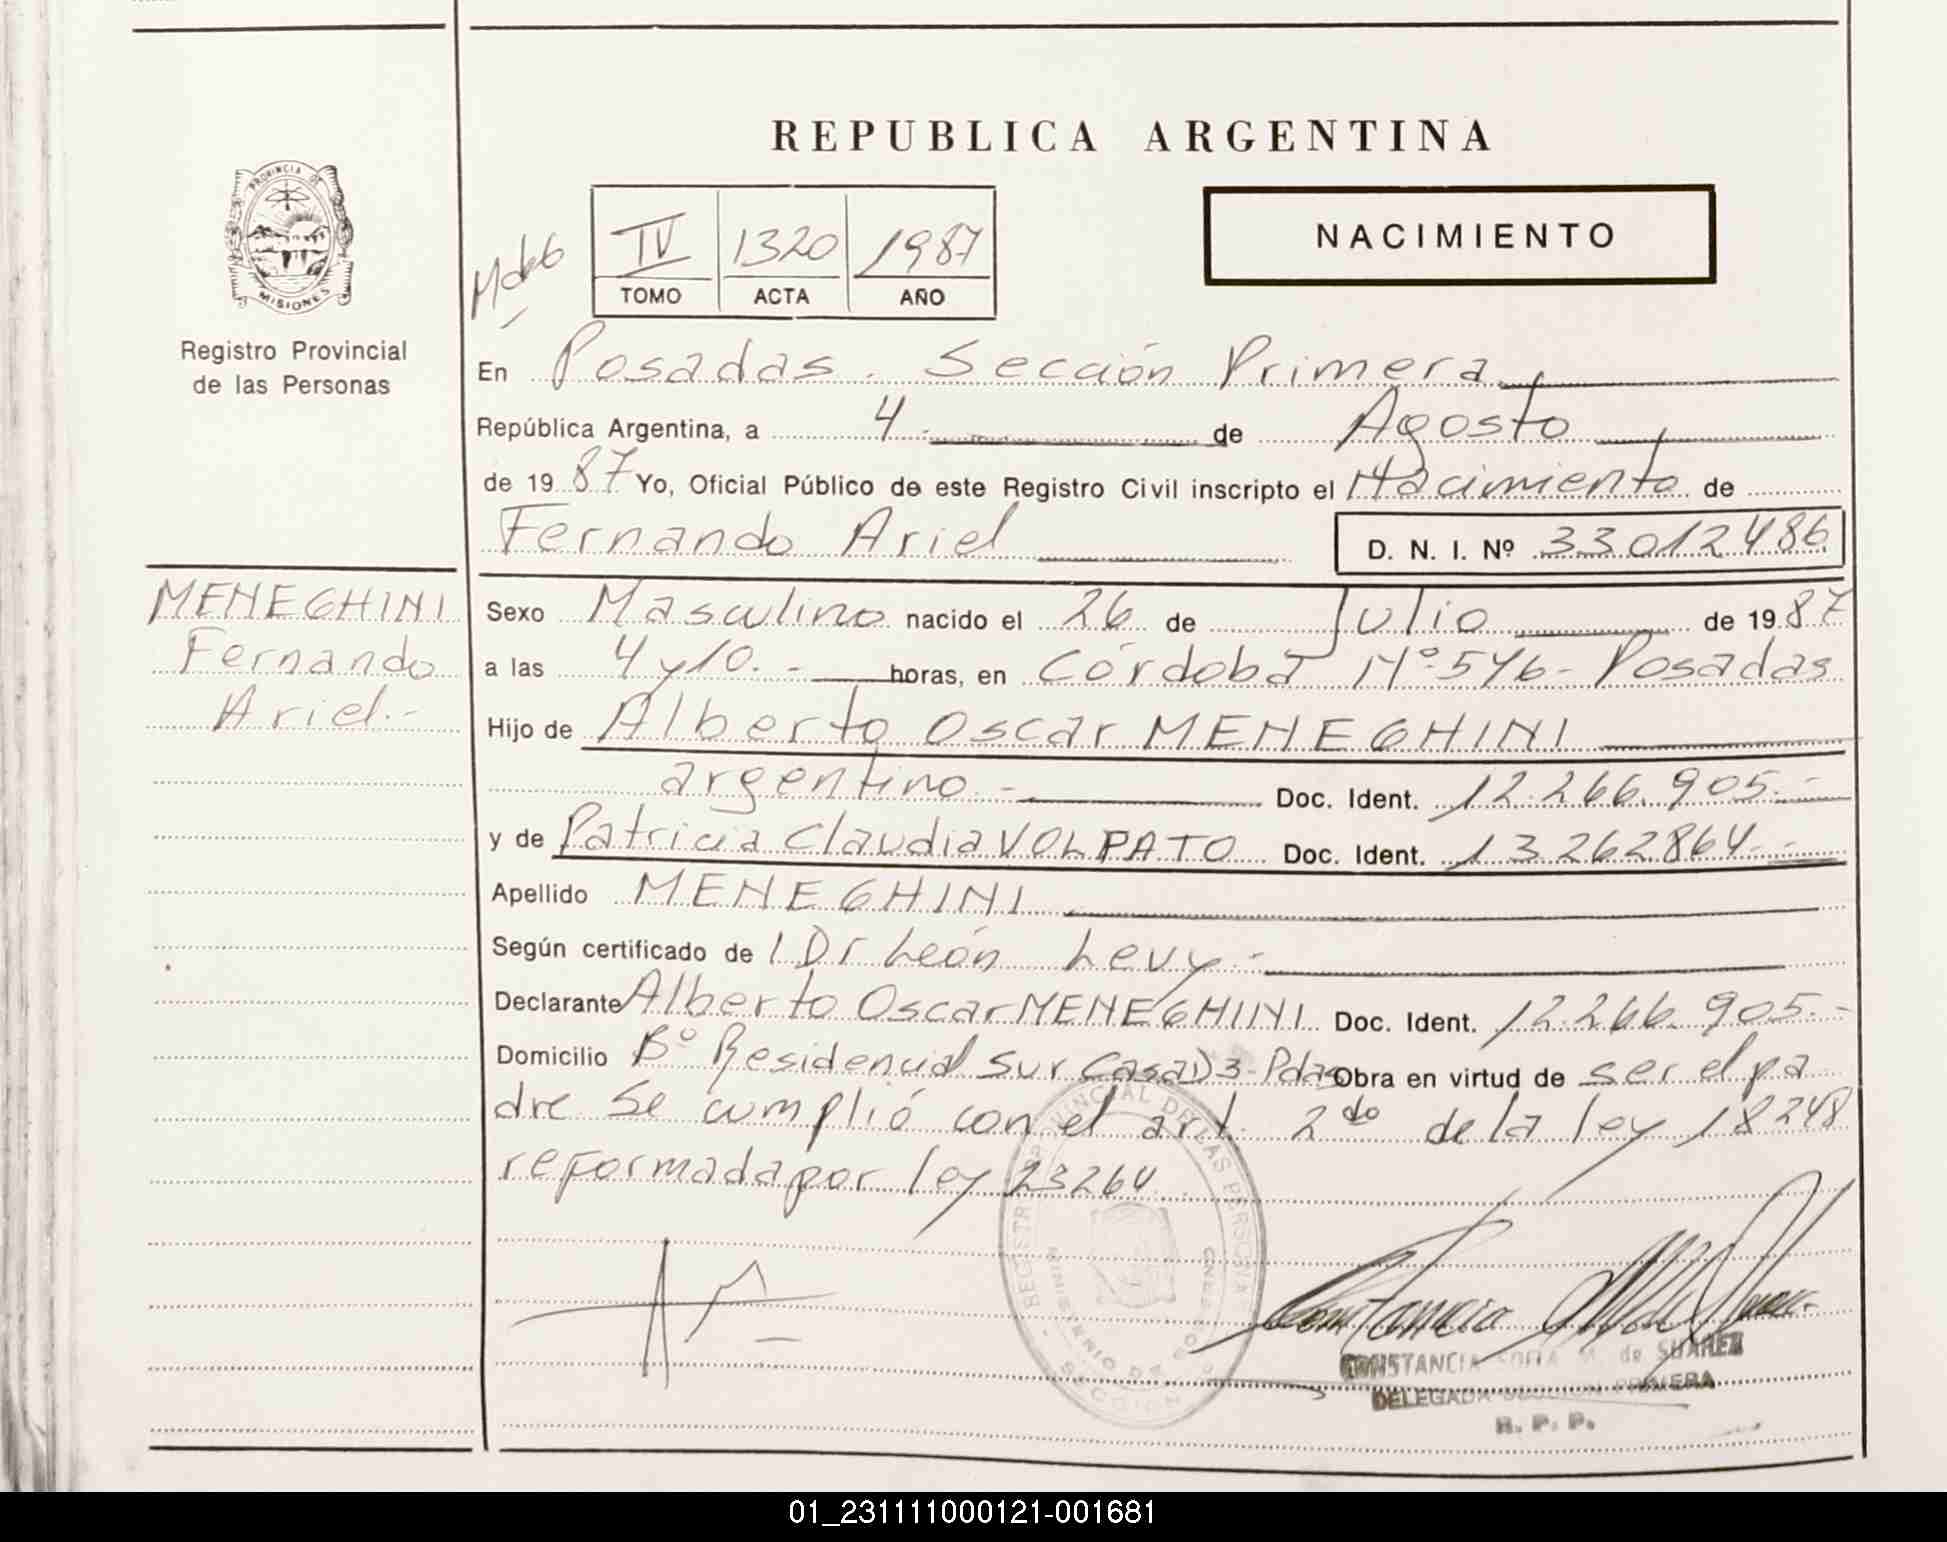 REPUBLICA ARGENTINA
PROVINCIA DE
MISIONES
Registro Provincial
de las Personas
IV 1320 1987
TOMO ACTA AÑO
NACIMIENTO
En Posadas. Sección Primera
República Argentina, a 4 de Agosto
de 1987 Yo, Oficial Público de este Registro Civil inscripto el Nacimiento de
Fernando Ariel D. N. I. Nº 33012486
MENEGHINI
Fernando
Ariel.-
Sexo Masculino nacido el 26 de Julio de 1987
a las 4 y 10.- horas, en Córdoba Nº 546- Posadas
Hijo de Alberto Oscar MENEGHINI
argentino.- Doc. Ident. 12.266.905.-
y de Patricia Claudia VOLPATO Doc. Ident. 13.262864.-
Apellido MENEGHINI
Según certificado de Dr León Levy.-
Declarante Alberto Oscar MENEGHINI Doc. Ident. 12.266.905.-
Domicilio Bº Residencial Sur Casa D3-Pdas Obra en virtud de ser el pa
dre Se cumplió con el art. 2do de la ley 18248
reformada por ley 23264
REGISTRO PROVINCIAL DE LAS PERSONAS
MINISTERIO DE GOBIERNO
SECCION
CONSTANCIA SOFIA M. de SUAREZ
DELEGADA SECCION PRIMERA
R. P. P.
01_231111000121-001681